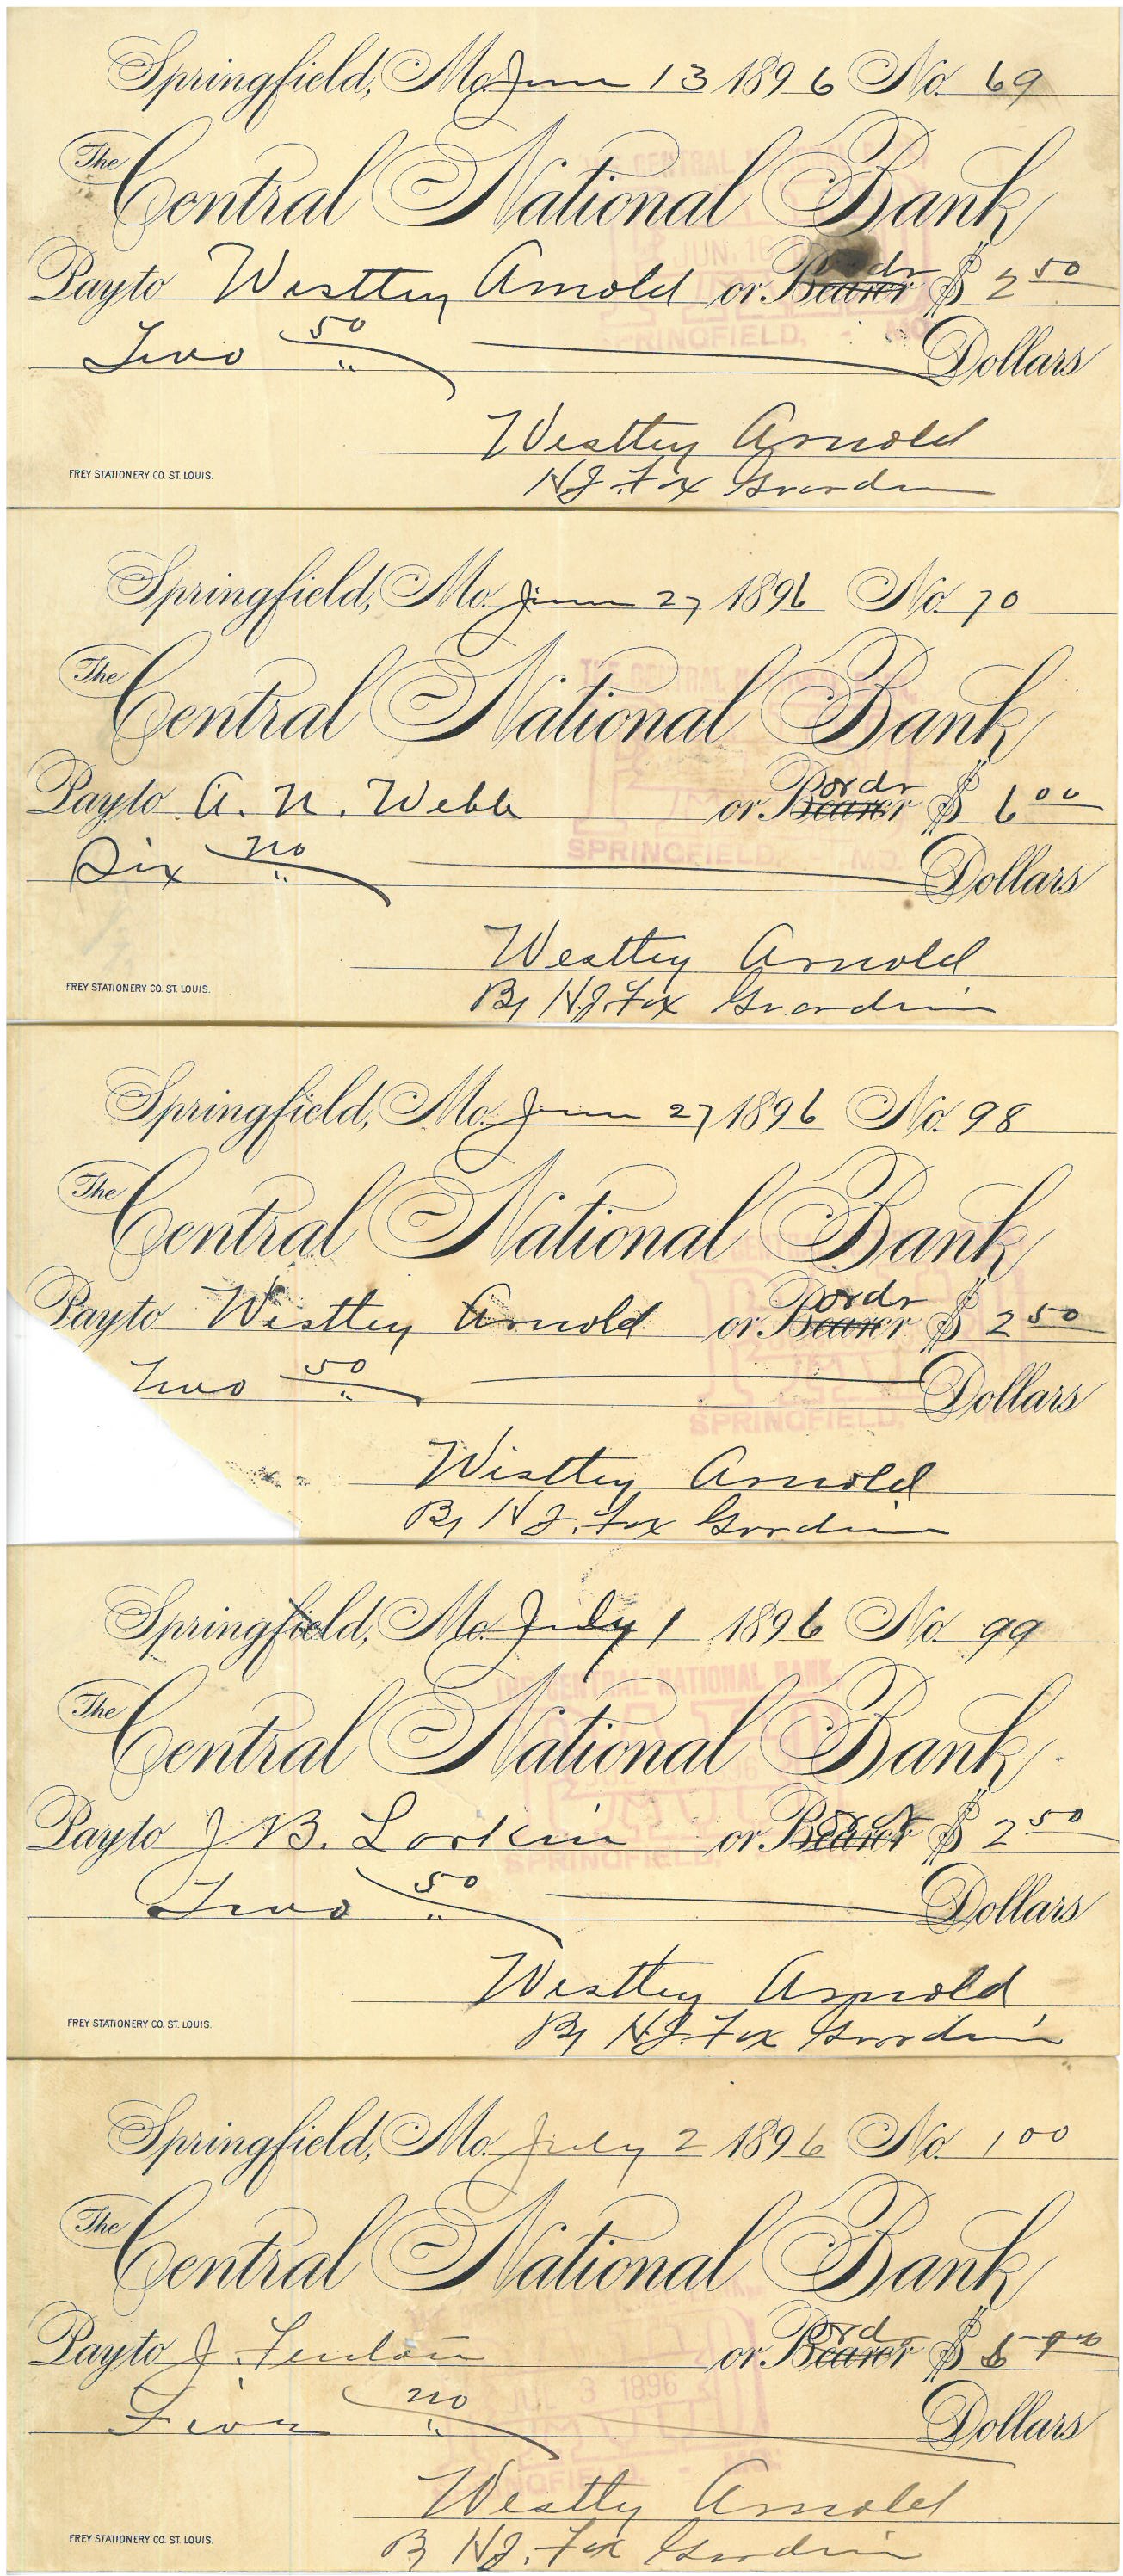 Springfield, Mo. June 13 1896 No. 69
THE CENTRAL NATIONAL BANK
The Central National Bank
JUN 16
Pay to Westley Arnold or Bearer ordr $ 2 50
SPRINGFIELD,
Two 50 Dollars
Westley Arnold
H J. Fox Guardian
FREY STATIONERY CO. ST. LOUIS.
Springfield, Mo. June 27 1896 No. 70
THE CENTRAL
The Central National Bank
Pay to A. N. Webb or Bearer ordr $ 6 00
SPRINGFIELD MO.
Six no Dollars
Westley Arnold
By H.J. Fox Guardian
FREY STATIONERY CO. ST. LOUIS.
Springfield, Mo. June 27 1896 No. 98
The Central National Bank
Pay to Westley Arnold or Bearer ordr $ 2 50
Two 50 Dollars
SPRINGFIELD,
Westley Arnold
By H J. Fox Guardian
Springfield, Mo. July 1 1896 No. 99
THE CENTRAL NATIONAL BANK
The Central National Bank
Pay to J B. Lorkin or Bearer $ 2 50
SPRINGFIELD,
Two 50 Dollars
Westley Arnold
By H.J. Fox Guardian
FREY STATIONERY CO. ST. LOUIS.
Springfield, Mo. July 2 1896 No. 100
The Central National Bank
Pay to J. or Bearer ord $
JUL 3 1896
no Dollars
Westly Arnold
By H J. Fox Guardian
FREY STATIONERY CO. ST. LOUIS.